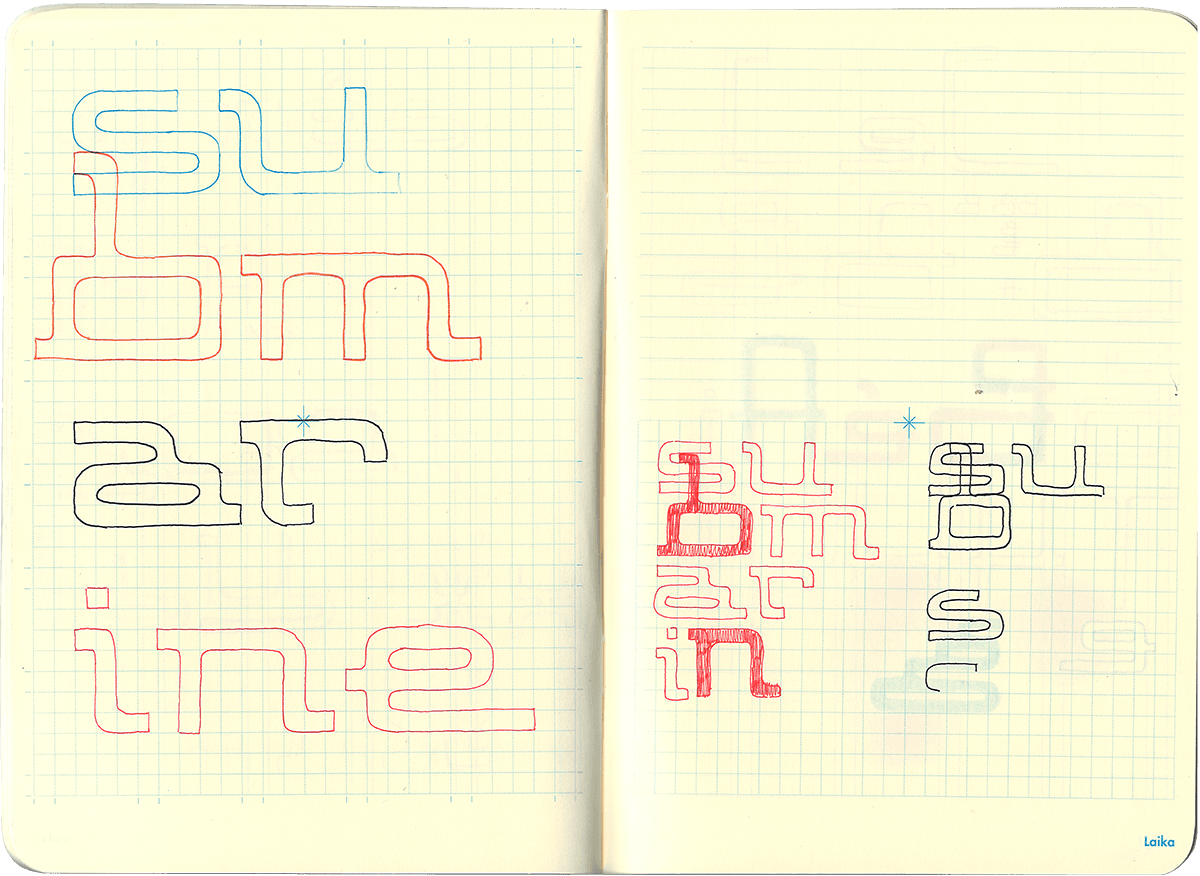 su
bm
ar
ine
su
bm
ar
in
su
b
s
Laika